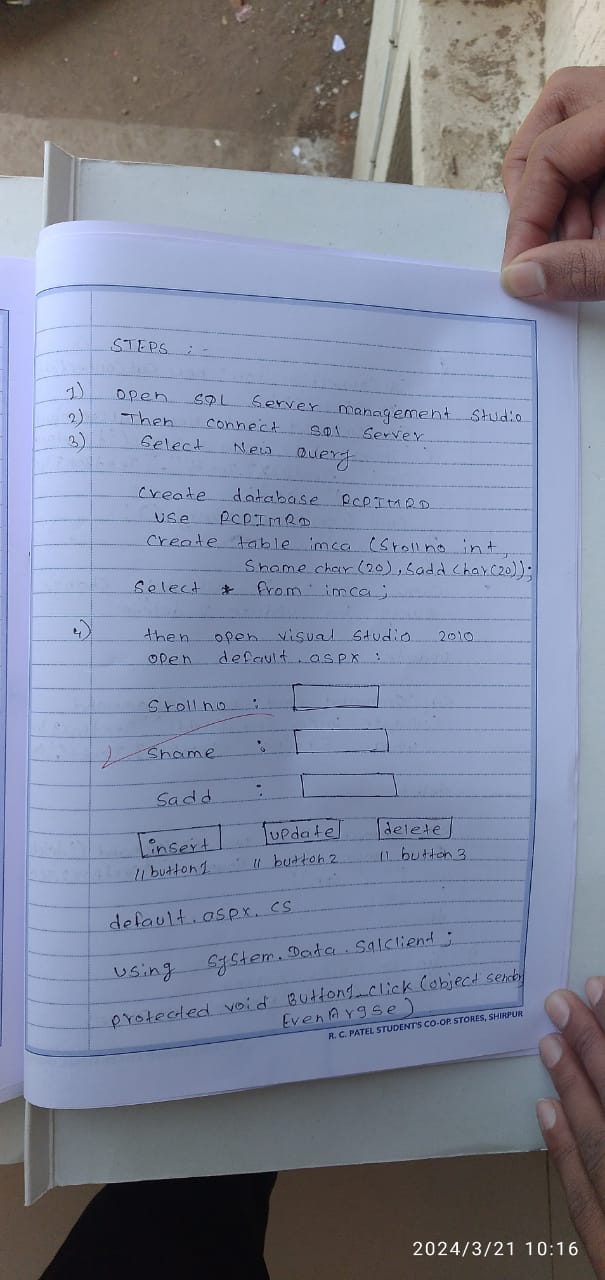 STEPS :-
1) open SQL Server management Studio
2) Then connect SQl Server
3) Select New Query
Create database RCPIMRD
use RCPIMRD
Create table imca (Srollno int,
Sname char(20), Sadd char(20));
Select * from imca;
4) then open visual Studio 2010
open default.aspx :
Srollno :
Sname :
Sadd :
insert update delete
// button1 // button2 // button3
default.aspx.cs
using System.Data.SqlClient;
protected void Button1_click (object sender
EvenArgse)
R. C. PATEL STUDENT'S CO-OP. STORES, SHIRPUR
2024/3/21 10:16